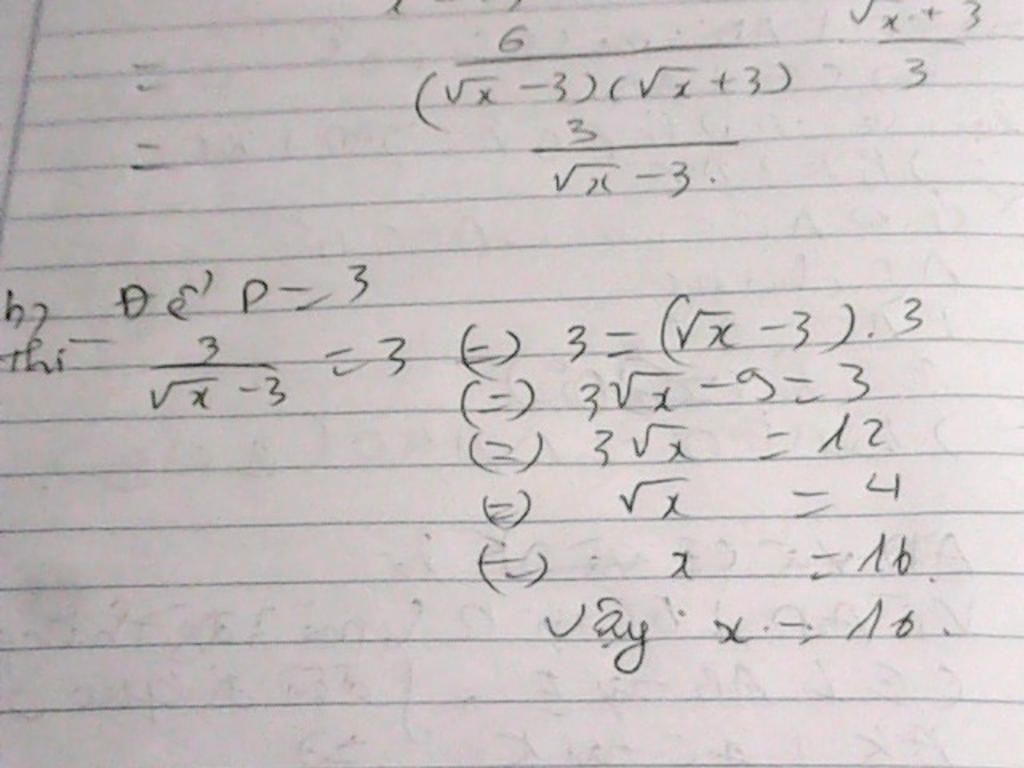 = 6 / (√x - 3)(√x + 3) · √x + 3 / 3
= 3 / √x - 3.
b, Để P = 3
thì 3 / √x - 3 = 3 (=) 3 = (√x - 3). 3
(=) 3√x - 9 = 3
(=) 3√x = 12
(=) √x = 4
(=) x = 16.
Vậy x = 16.